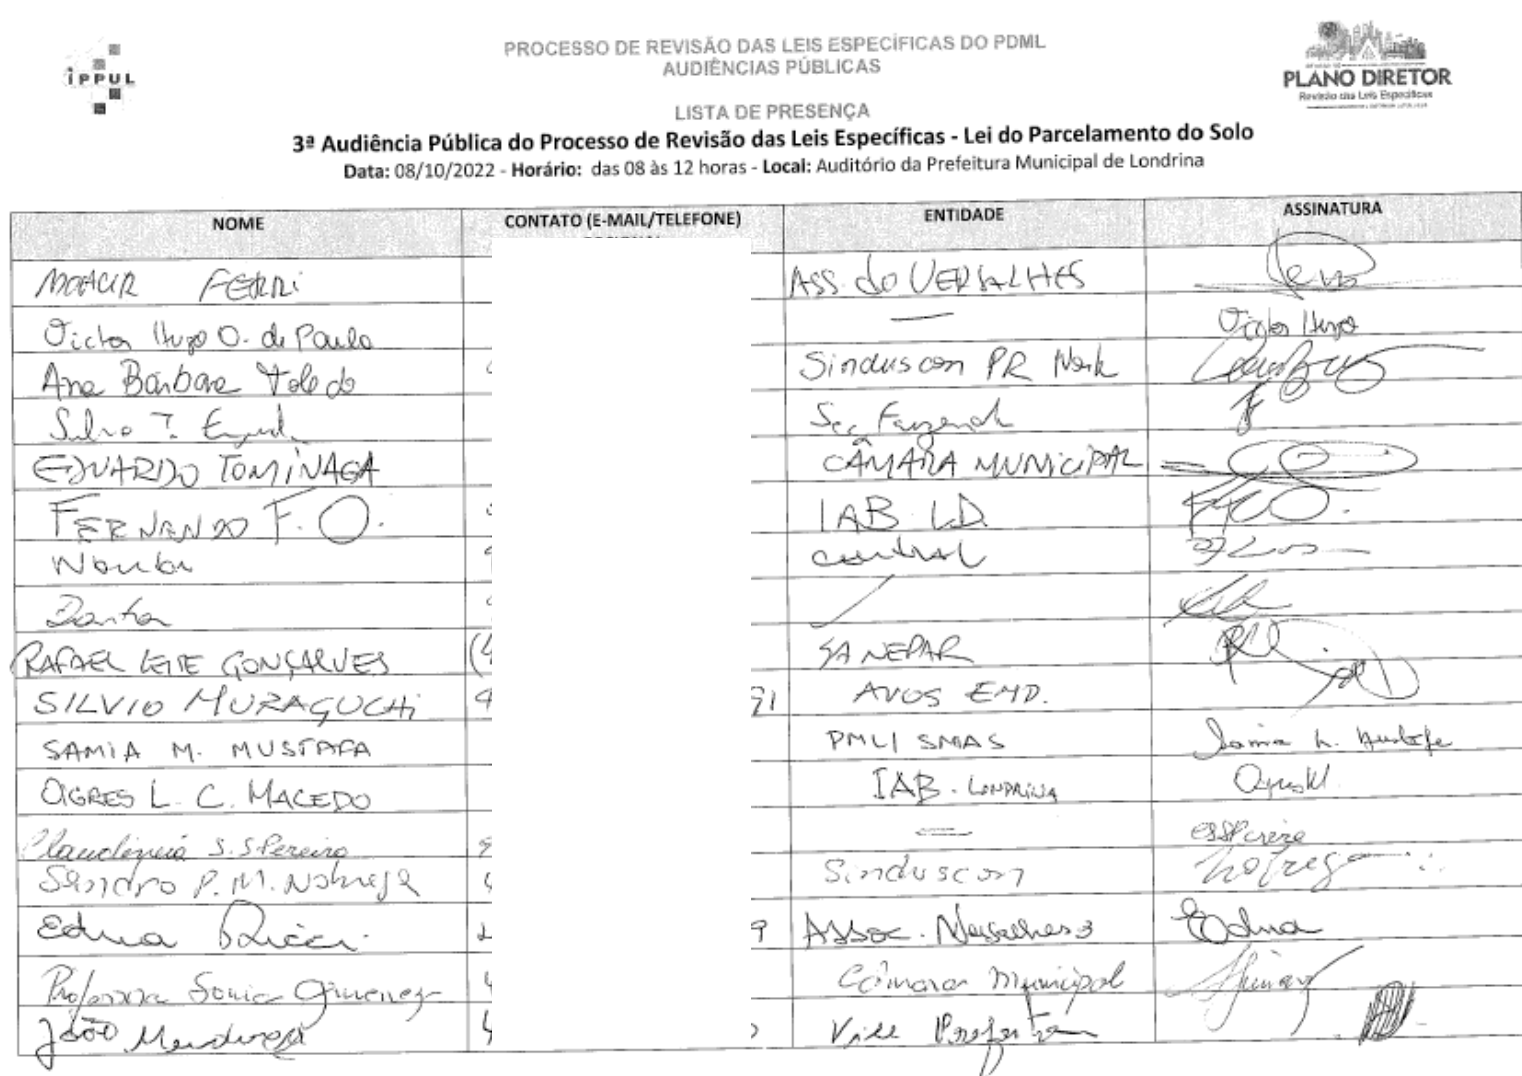 iPPUL
PROCESSO DE REVISÃO DAS LEIS ESPECÍFICAS DO PDML
AUDIÊNCIAS PÚBLICAS
PLANO DIRETOR
Revisão das Leis Específicas
LISTA DE PRESENÇA
3ª Audiência Pública do Processo de Revisão das Leis Específicas - Lei do Parcelamento do Solo
Data: 08/10/2022 - Horário: das 08 às 12 horas - Local: Auditório da Prefeitura Municipal de Londrina
NOME CONTATO (E-MAIL/TELEFONE) ENTIDADE ASSINATURA
MOACIR FERRI ASS. do VERSALHES
Victor Hugo O. de Paula — Victor Hugo
Ana Barbara Toledo Sinduscon PR Norte
T. Sec Fazenda
EDUARDO TOMINAGA CÂMARA MUNICIPAL
FERNANDO F. O. IAB LD.
RAFAEL LEITE GONÇALVES SANEPAR
SILVIO MURAGUCHI 91 AVOS EMD.
SAMIA M. MUSTAFA PMLI SMAS Samia M. Mustafa
OIGRES L. C. MACEDO IAB - LONDRINA
Claudineia S. S Pereira — CSSPereira
Sandro P. M. Nobrega Sinduscon Nobrega
Edna Ricci 9 Assoc. Versalhes 3 Edna
Professora Sonia Gimenez Câmara Municipal
João Mendonça Vice Prefeito